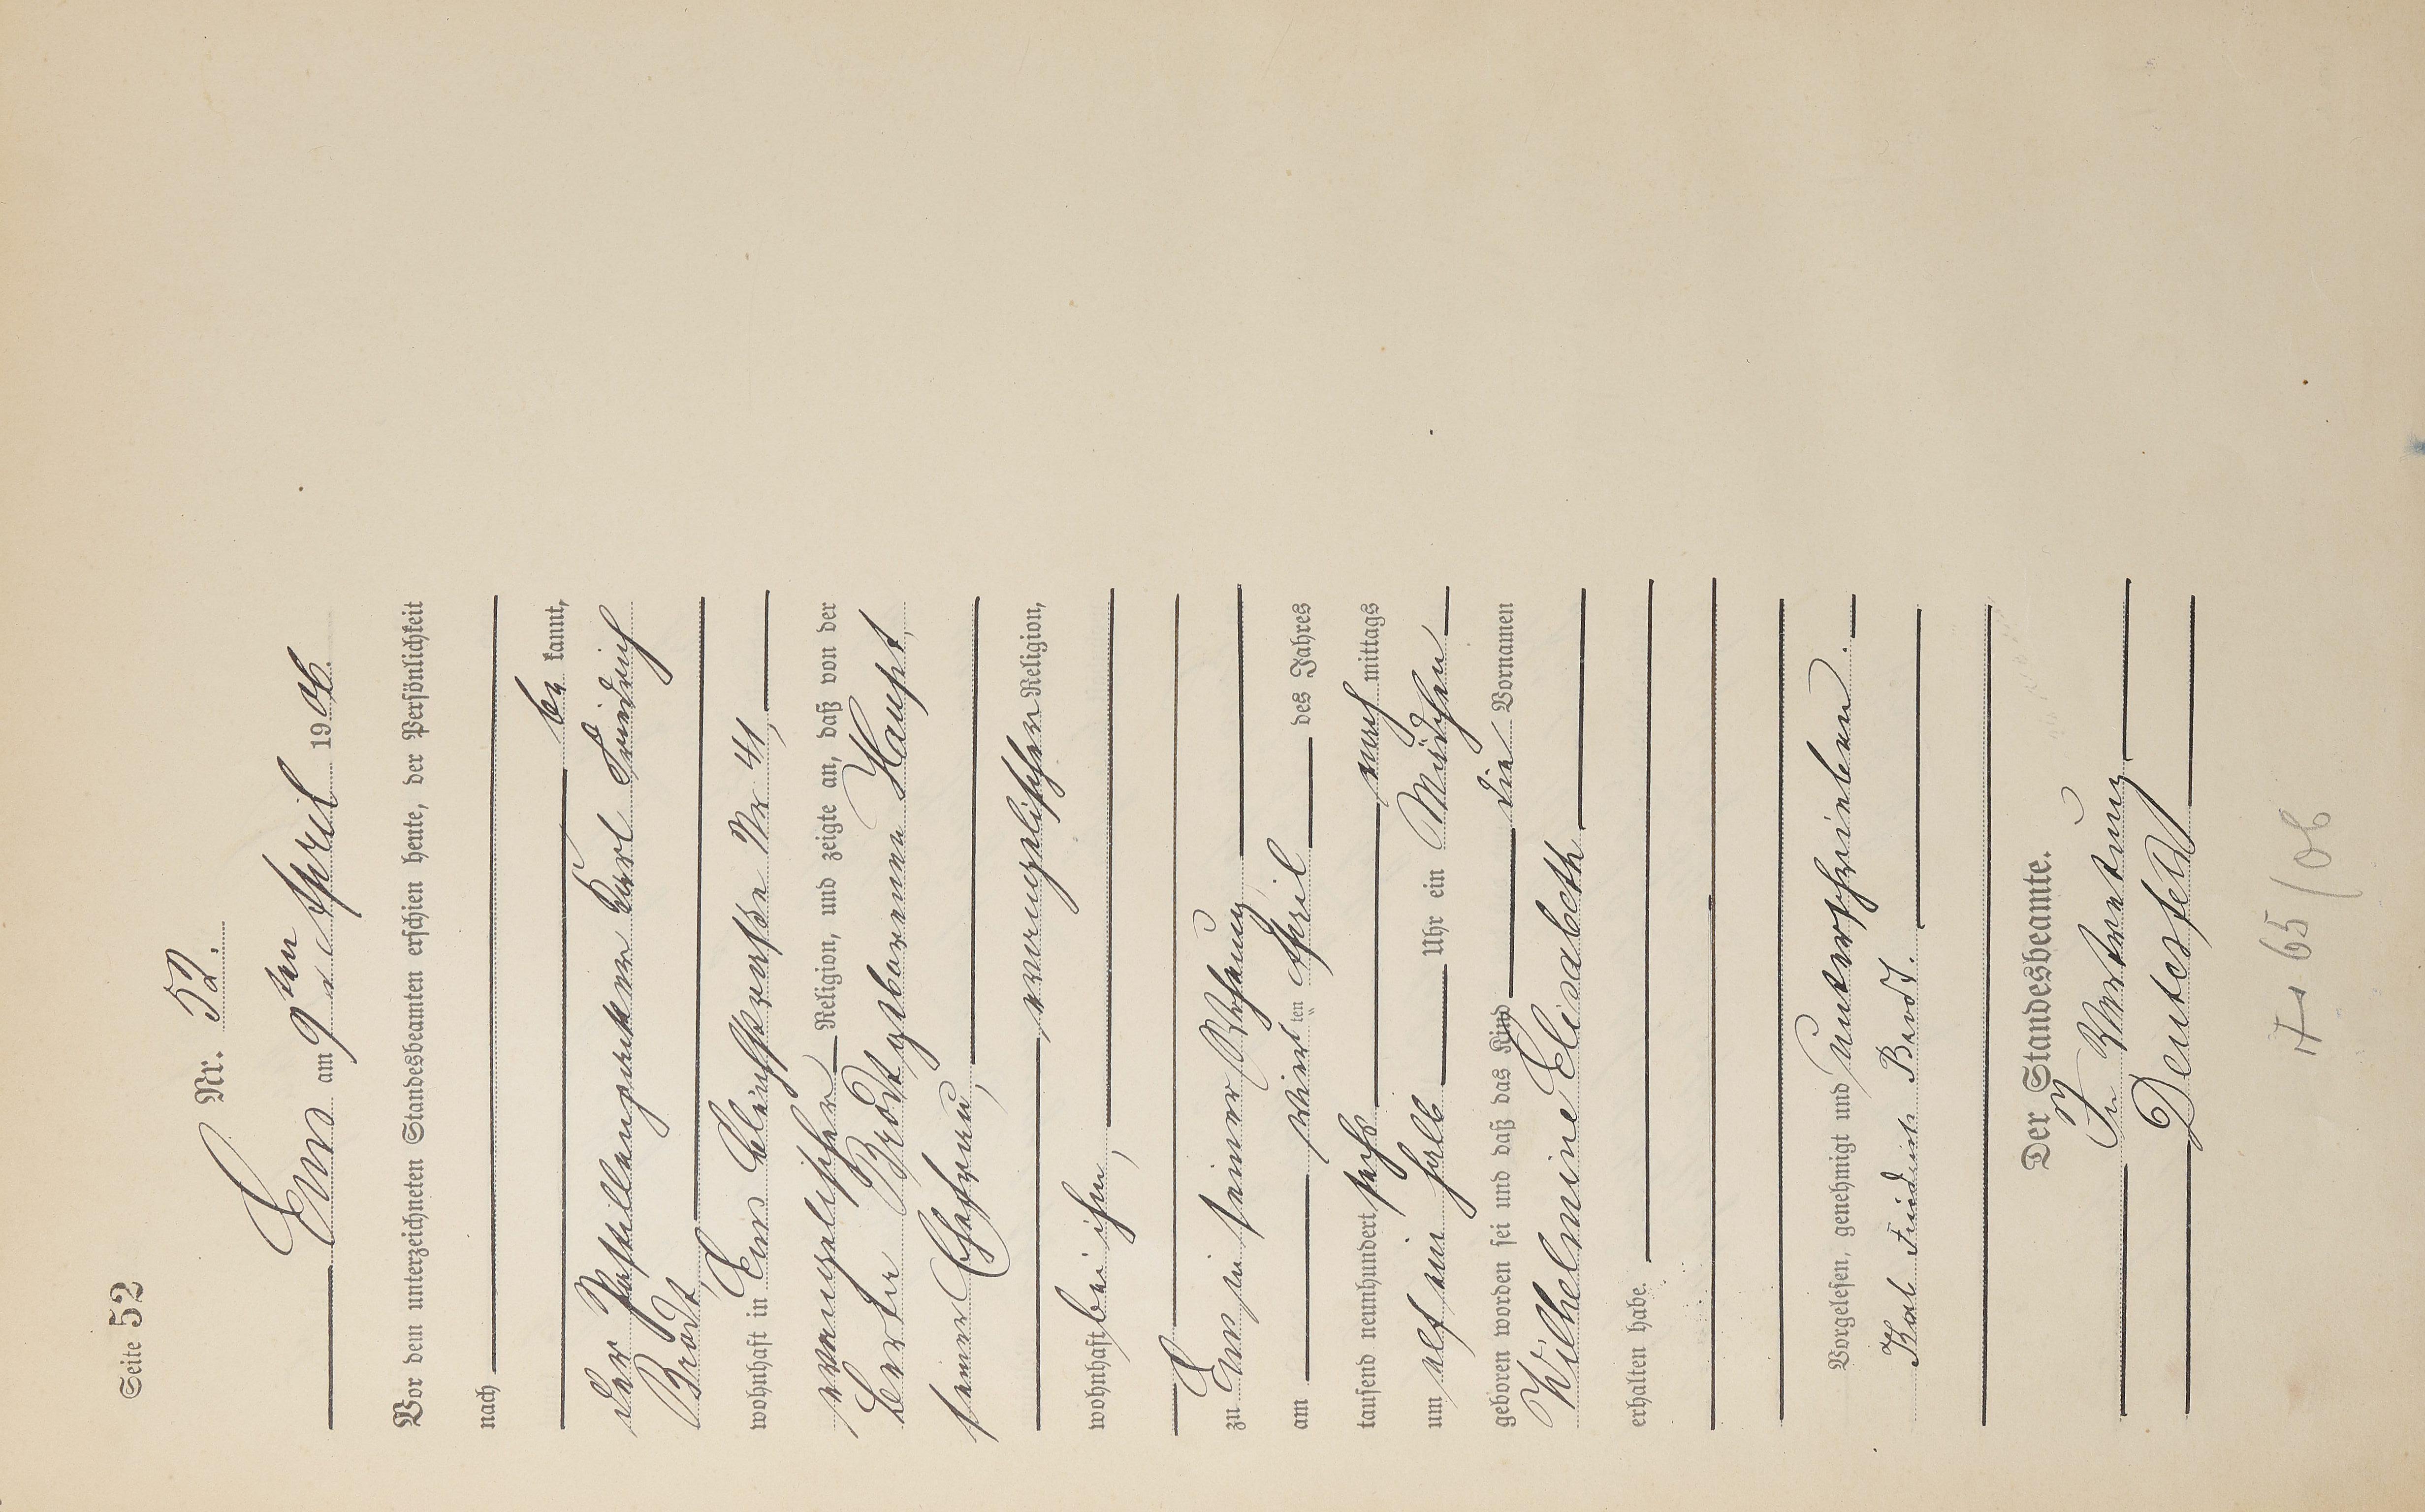 Seite 52
Nr. 52.
Ems am 9ten April 1906.
Vor dem unterzeichneten Standesbeamten erschien heute, der Persönlichkeit
nach
be kannt,
der Pastillenpacker Karl Friedrich
Brodt,
wohnhaft in Ems Bleichstraße Nr 41,
evangelischer Religion, und zeigte an, daß von der
Berta Brodt geborenen Haupt,
seiner Ehefrau,
evangelischen Religion,
wohnhaft bei ihm,
zu Ems in seiner Wohnung
am vierten April des Jahres
tausend neunhundert sechs nach mittags
um elf ein halb Uhr ein Mädchen
geboren worden sei und daß das Kind die Vornamen
Wilhelmine Elisabeth
erhalten habe.
Vorgelesen, genehmigt und unterschrieben.
Karl Friedrich Brodt.
Der Standesbeamte.
In Vertretung
Deutesfeld
65/06